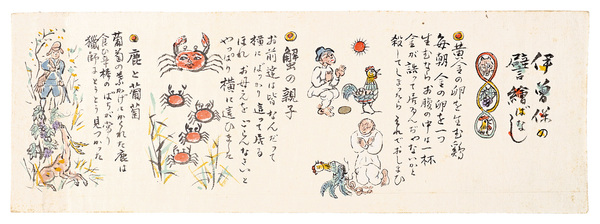 伊曽保の
譬繪ばなし
黄金の卵を生む鶏
毎朝 金の卵を一つ
生むならお腹の中は一杯
金が詰って居るぢやないかと
殺してしまったら それでおしまひ
蟹の親子
お前達は皆なんだって
横にばっかり這って居る
ほれ お母さんをごらんなさいと
やっぱり横に這ひました
鹿と葡萄
葡萄の葉かげにかくれた鹿は
食む
獵師にとうとう見つかった